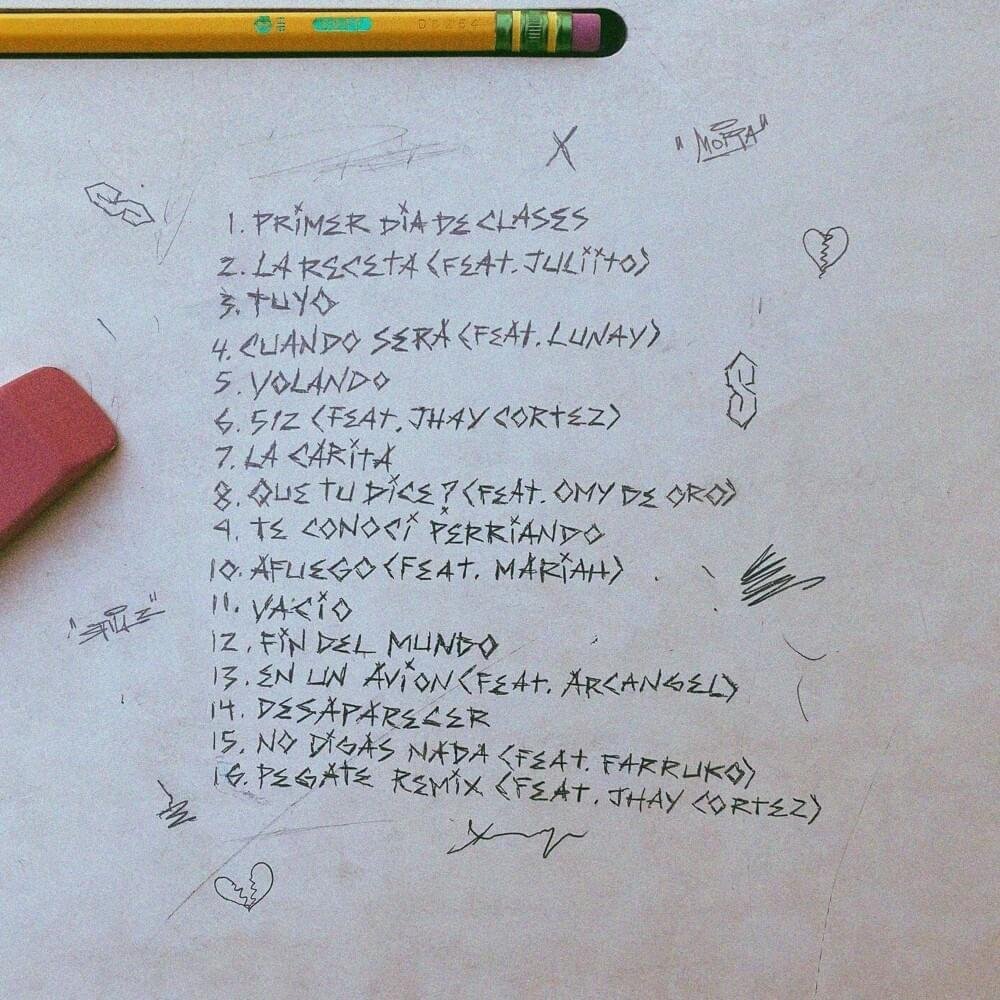 "MORA"
1. PRIMER DIA DE CLASES
2. LA RECETA (FEAT. JULIITO)
3. TUYO
4. CUANDO SERÁ (FEAT. LUNAY)
5. VOLANDO
6. 512 (FEAT. JHAY CORTEZ)
7. LA CARITA
8. QUE TU DICE? (FEAT. OMY DE ORO)
9. TE CONOCÍ PERRIANDO
10. AFUEGO (FEAT. MARIAH)
11. VACÍO
12. FIN DEL MUNDO
13. EN UN AVIÓN (FEAT. ARCANGEL)
14. DESAPARECER
15. NO DIGAS NADA (FEAT. FARRUKO)
16. PEGATE REMIX (FEAT. JHAY CORTEZ)